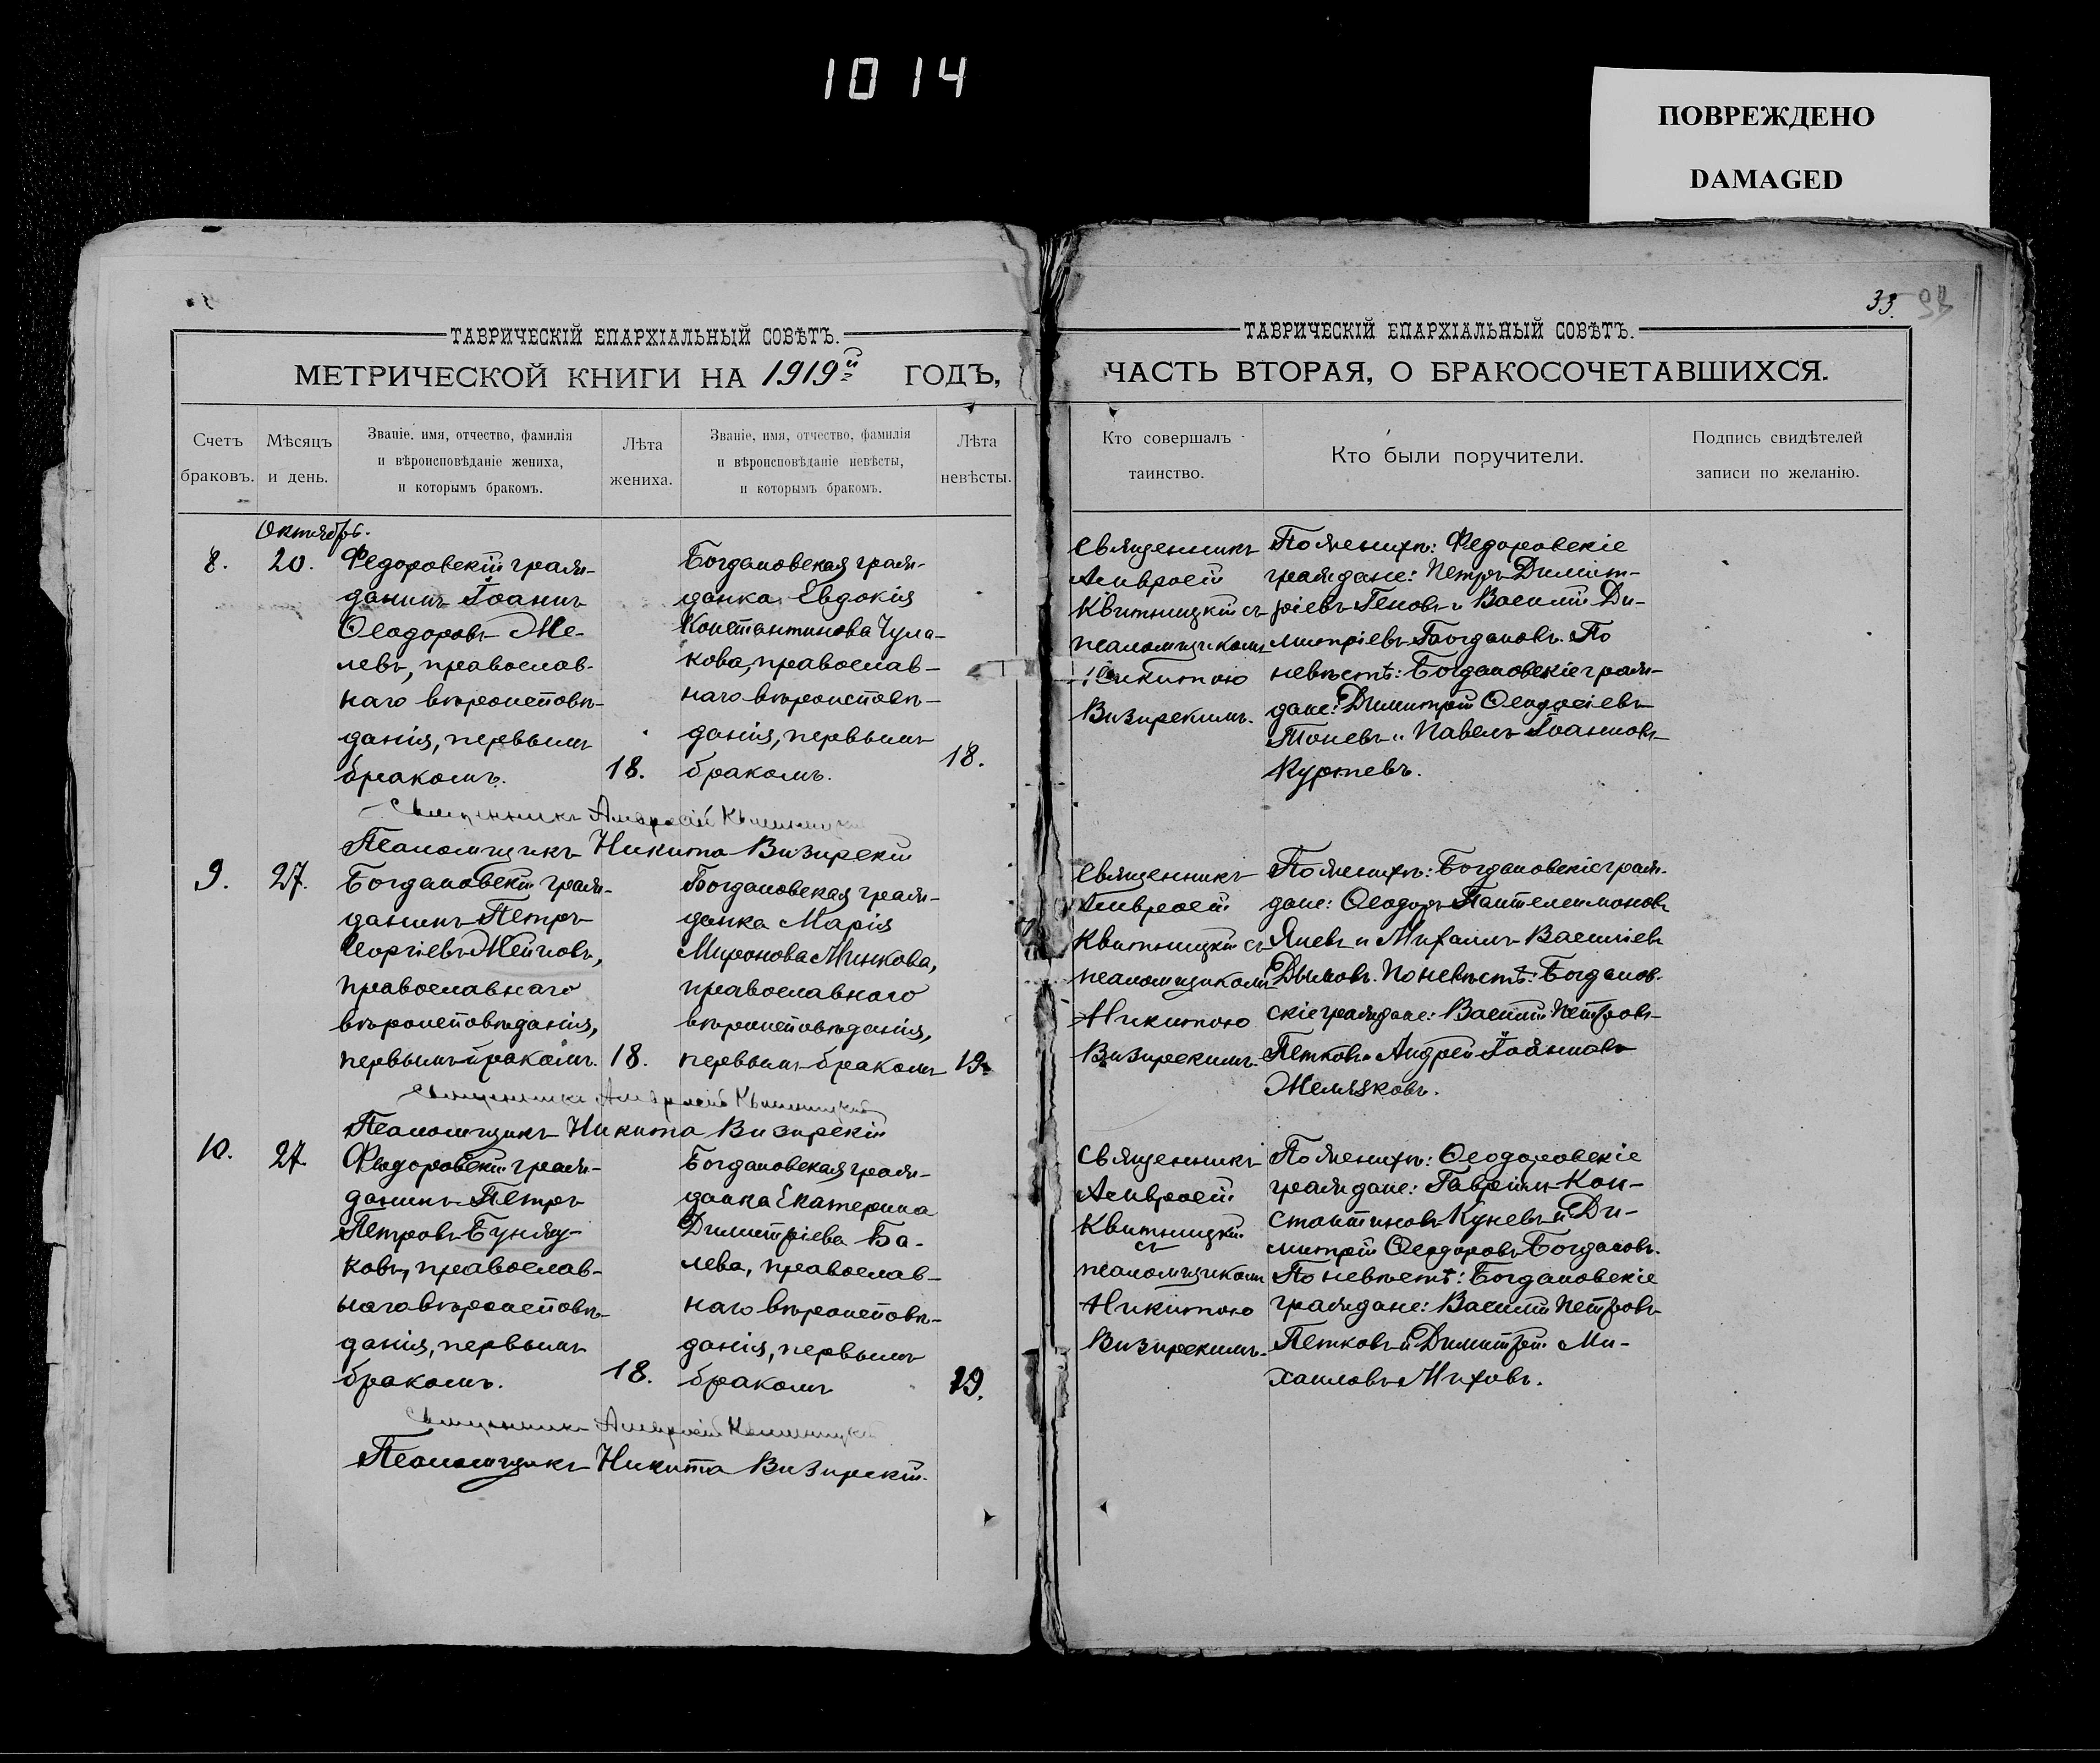 1014
ПОВРЕЖДЕНО
DAMAGED
ТАВРИЧЕСКІЙ ЕПАРХІАЛЬНЫЙ СОВѢТЪ.
МЕТРИЧЕСКОЙ КНИГИ НА 1919й ГОДЪ,
Счетъ браковъ.
Мѣсяцъ и день.
Званіе, имя, отчество, фамилія
и вѣроисповѣданіе жениха,
и которымъ бракомъ.
Лѣта жениха.
Званіе, имя, отчество, фамилія
и вѣроисповѣданіе невѣсты,
и которымъ бракомъ.
Лѣта невѣсты.
Октябрь.
8.
20.
Федоровскій граж-
данинъ Іоаннъ
Ѳеодоровъ Же-
левъ, православ-
наго вѣроисповѣ-
данія, первымъ
бракомъ.
18.
Богдановская граж-
данка Евдокія
Константинова Чула-
кова, православ-
наго вѣроисповѣ-
данія, первымъ
бракомъ.
18.
Священникъ Амвросій Квитницкій
Псаломщикъ Никита Визирскій
9.
27.
Богдановскій граж-
данинъ Петръ
Георгіевъ
православнаго
вѣроисповѣданія,
первымъ бракомъ.
18.
Богдановская граж-
данка Марія
Миронова Минкова,
православнаго
вѣроисповѣданія,
первымъ бракомъ
19.
Священникъ Амвросій Квитницкій
Псаломщикъ Никита Визирскій
10.
27.
Федоровскій граж-
данинъ Петръ
Петровъ Бунжу-
ковъ, православ-
наго вѣроисповѣ-
данія, первымъ
бракомъ.
18.
Богдановская граж-
данка Екатерина
Димитріева Ба-
лева, православ-
наго вѣроисповѣ-
данія, первымъ
бракомъ
19.
Священникъ Амвросій Квитницкій
Псаломщикъ Никита Визирскій.
33.
ТАВРИЧЕСКІЙ ЕПАРХІАЛЬНЫЙ СОВѢТЪ.
ЧАСТЬ ВТОРАЯ, О БРАКОСОЧЕТАВШИХСЯ.
Кто совершалъ
таинство.
Кто были поручители.
Подпись свидѣтелей
записи по желанію.
Священникъ
Амвросій
Квитницкій съ
псаломщикомъ
Никитою
Визирскимъ.
По женихѣ: Федоровскіе
граждане: Петръ Димит-
ріевъ Геновъ и Василій Ди-
митріевъ Богдановъ. По
невѣстѣ: Богдановскіе граж-
дане: Димитрій Ѳеодосіевъ
Тоневъ и Павелъ Іоанновъ
Куртевъ.
Священникъ
Амвросій
Квитницкій съ
псаломщикомъ
Никитою
Визирскимъ.
По женихѣ: Богдановскіе граж-
дане: Ѳеодоръ Пантелеимоновъ
Яневъ и Михаилъ Василіевъ
Дымовъ. По невѣстѣ: Богданов-
скіе граждане: Василій Петровъ
Петковъ и Андрей Іоанновъ
Желязковъ.
Священникъ
Амвросій
Квитницкій
съ
псаломщикомъ
Никитою
Визирскимъ.
По женихѣ: Ѳеодоровскіе
граждане: Гавріилъ Кон-
стантиновъ Куневъ и Ди-
митрій Ѳеодоровъ Богдановъ.
По невѣстѣ: Богдановскіе
граждане: Василій Петровъ
Петковъ и Димитрій Ми-
хаиловъ Миховъ.